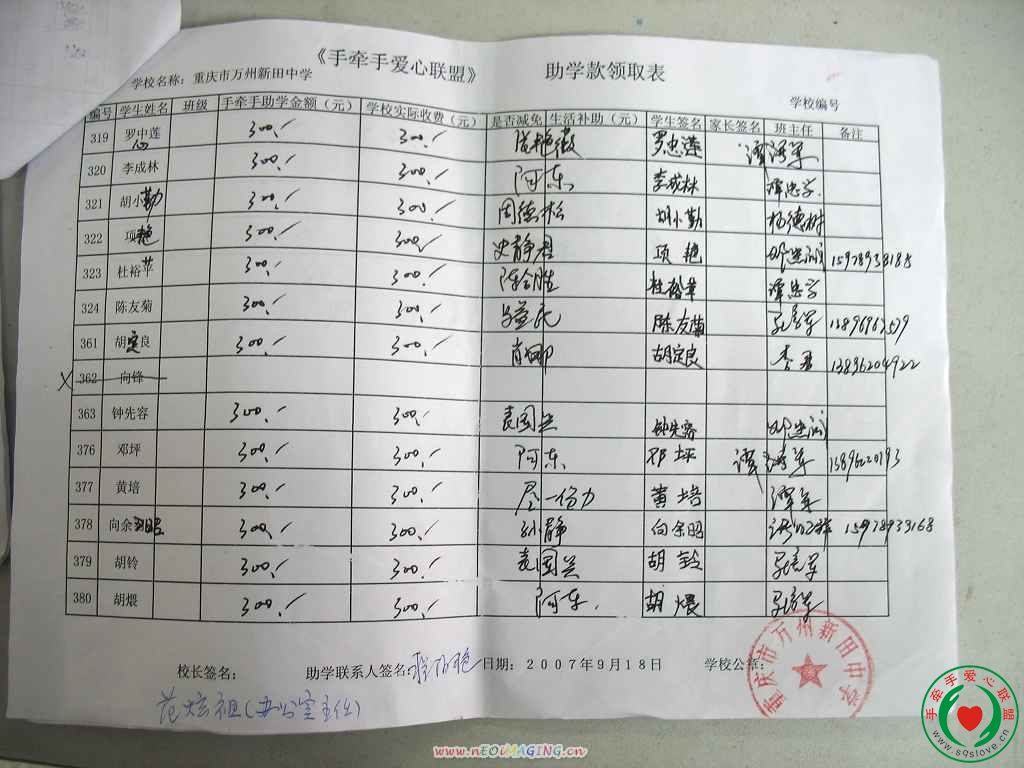 《手牵手爱心联盟》 助学款领取表
学校名称：重庆市万州新田中学 学校编号
编号 学生姓名 班级 手牵手助学金额（元） 学校实际收费（元） 是否减免 生活补助（元） 学生签名 家长签名 班主任 备注
319 罗中莲 300./ 300./ 罗忠莲
心
320 李成林 300./ 300./ 阿东 李成林 谭忠学
321 胡小勤 300./ 300./ 周德松 胡小勤 杨德树
322 项艳 300./ 300./ 史静君 项艳 15978938188
323 杜裕苹 300./ 300./ 杜裕苹 谭忠学
324 陈友菊 300./ 300./ 陈友菊
361 胡定良 300./ 300./ 肖娜 胡定良 李君 13896204922
X 362 向锋
363 钟先容 300./ 300./ 袁国兴 钟先容
376 邓坪 300./ 300./ 阿东 邓坪 13896220193
377 黄培 300./ 300./ 尽一份力 黄培 谭军
378 向余昭 300./ 300./ 孙静 向余昭 15978939168
379 胡铃 300./ 300./ 袁国兴 胡铃
380 胡煨 300./ 300./ 阿东. 胡煨
校长签名： 助学联系人签名： 日期：2007年9月18日 学校公章：
范炫祖(办公室主任)
重庆市万州新田中学
手牵手爱心联盟
www.sqslove.cn
www.nEOiMAGING.cn